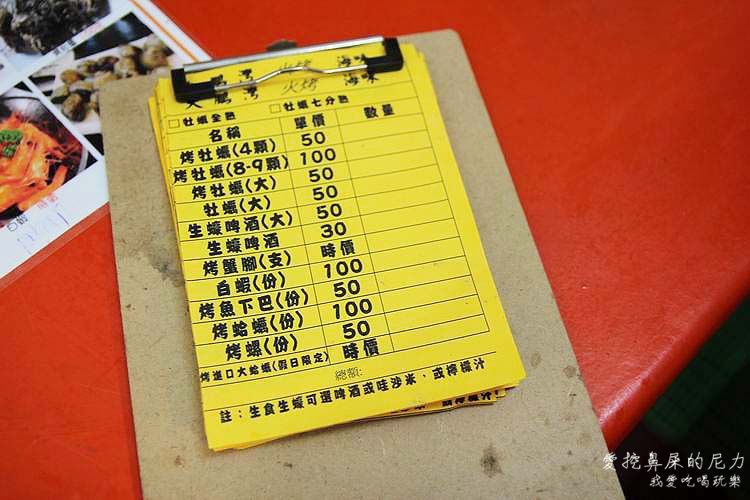 鵬灣 火烤 海味
大鵬灣 火烤 海味
□牡蠣全熟 □牡蠣七分熟
名稱 單價 數量
烤牡蠣(4顆) 50
烤牡蠣(8-9顆) 100
烤牡蠣(大) 50
牡蠣(大) 50
生蠔啤酒(大) 50
生蠔啤酒 30
烤蟹腳(支) 時價
白蝦(份) 100
烤魚下巴(份) 50
烤蛤蠣(份) 100
烤螺(份) 50
烤進口大蛤蠣(假日限定) 時價
總額:
註：生食生蠔可選啤酒或哇沙米、或檸檬汁
或檸檬汁
愛挖鼻屎的尼力
我愛吃喝玩樂